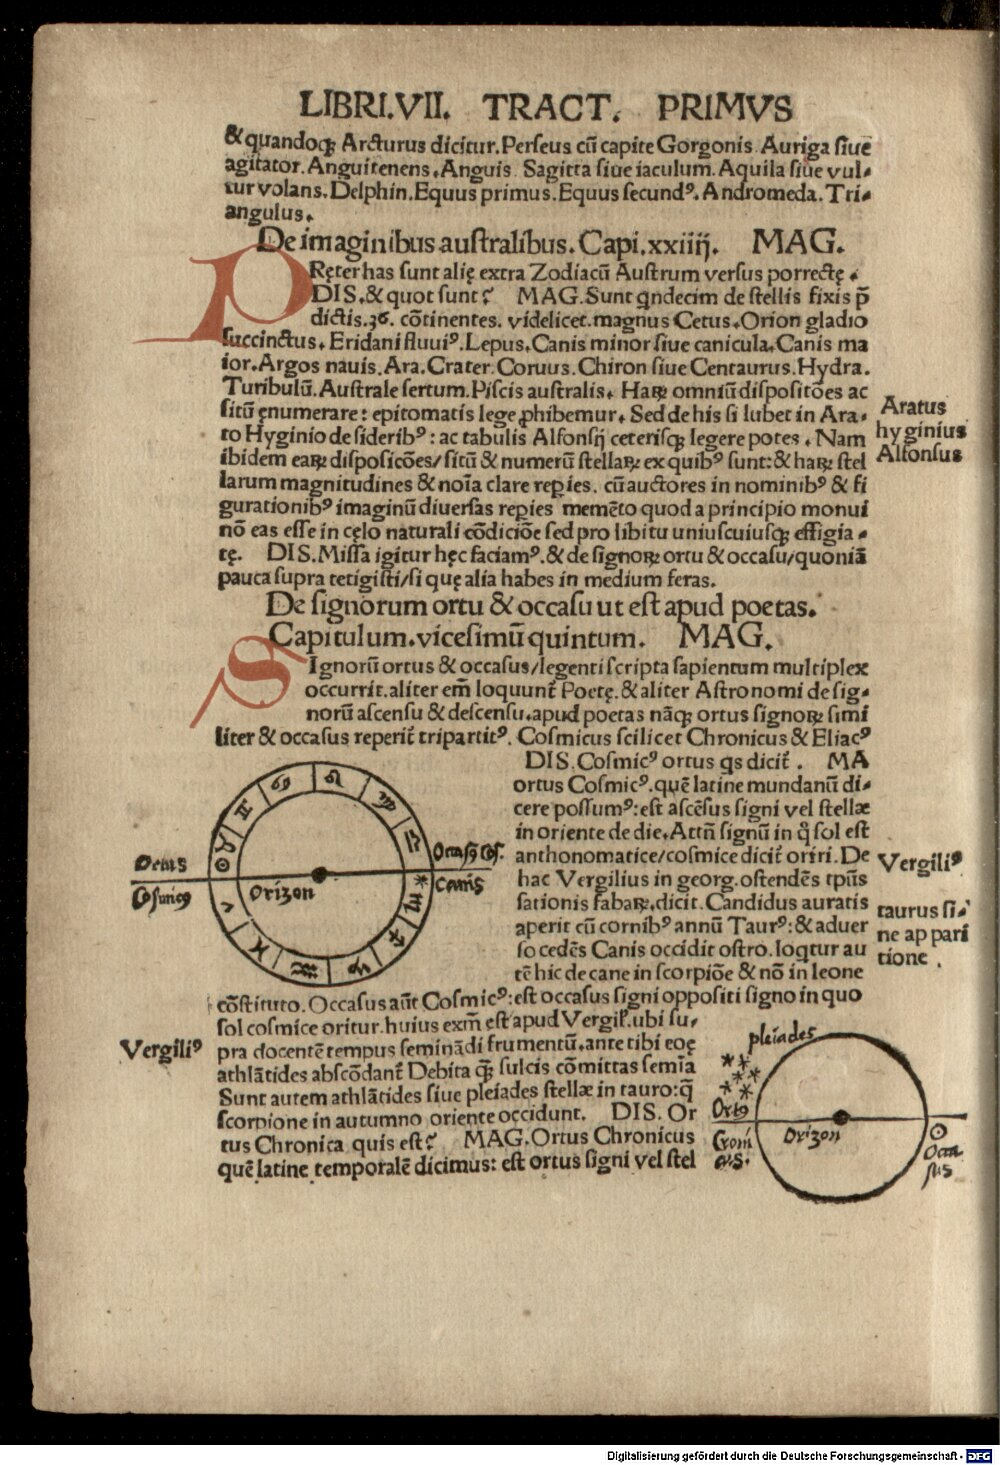 LIBRI.VII. TRACT. PRIMVS
& quandoqꝫ Arcturus dicitur. Perseus cū capite Gorgonis Auriga siue
agitator. Anguitenens. Anguis Sagitta siue iaculum. Aquila siue vul-
tur volans. Delphin. Equus primus. Equus secundꝰ. Andromeda. Tri-
angulus.
De imaginibus australibus. Capi. xxiiij. MAG.
PRęter has sunt alię extra Zodiacū Austrum versus porrectę.
DIS. & quot sunt? MAG. Sunt qndecim de stellis fixis p̄
dictis.36. cōtinentes. videlicet. magnus Cetus. Orion gladio
succinctus. Eridani fluuiꝰ. Lepus. Canis minor siue canicula. Canis ma
ior. Argos nauis. Ara. Crater. Coruus. Chiron siue Centaurus. Hydra.
Turibulū. Australe sertum. Piscis australis. Haꝝ omniū dispositōes ac
sitū ęnumerare: epitomatis lege ꝓhibemur. Sed de his si lubet in Ara-
to Hyginio de sideribꝰ: ac tabulis Alfonsij ceterisqꝫ legere potes. Nam
ibidem eaꝝ disposicōes/ sitū & numerū stellaꝝ ex quibꝰ sunt: & haꝝ stel
larum magnitudines & noīa clare reꝑies. cū auctores in nominibꝰ & fi
gurationibꝰ imaginū diuersas reꝑies memēto quod a principio monui
nō eas esse in cęlo naturali cōdiciōe sed pro libitu uniuscuiusqꝫ effigia-
tę. DIS. Missa igitur hęc faciamꝰ. & de signoꝝ ortu & occasu/ quoniā
pauca supra tetigisti/ si quę alia habes in medium feras.
Aratus
hyginius
Alfonsus
De signorum ortu & occasu ut est apud poetas.
Capitulum. vicesimū quintum. MAG.
SIgnorū ortus & occasus/ legenti scripta sapientum multiplex
occurrit. aliter em̄ loquunt̄ Poetę. & aliter Astronomi de sig-
norū ascensu & descensu. apud poetas nāqꝫ ortus signoꝝ simi
liter & occasus reperit̄ tripartitꝰ. Cosmicus scilicet Chronicus & Eliacꝰ
DIS. Cosmicꝰ ortus qs dicit̄. MA
ortus Cosmicꝰ. quē latine mundanū di-
cere possumꝰ: est ascēsus signi vel stellæ
in oriente de die. Attn̄ signū in q̄ sol est
anthonomatice/ cosmice dicit̄ oriri. De
hac Vergilius in georg. ostendēs tp̄us
sationis fabaꝝ. dicit. Candidus auratis
aperit cū cornibꝰ annū Taurꝰ: & aduer
so cedēs Canis occidit ostro. loqtur au
tē hic de cane in scorpiōe & nō in leone
Vergiliꝰ
taurus si-
ne appari
tione.
Ortus
Cosmicꝰ
Orizon
Occasꝰ Cos.
Canis
cōstituto. Occasus aūt Cosmicꝰ: est occasus signi oppositi signo in quo
sol cosmice oritur. huius exm̄ est apud Vergil̄. ubi su-
pra docentē tempus seminādi frumentū. ante tibi eoę
athlātides abscōdant̄ Debita q̄ꝫ sulcis cōmittas semīa
Sunt autem athlātides siue pleiades stellæ in tauro: q̄
scorpione in autumno oriente occidunt. DIS. Or
tus Chronica quis est? MAG. Ortus Chronicus
quē latine temporalē dicimus: est ortus signi vel stel
Vergiliꝰ
pleiades
Ortꝰ
Croni
cus.
Orizon
Occa
sus
Digitalisierung gefördert durch die Deutsche Forschungsgemeinschaft - DFG